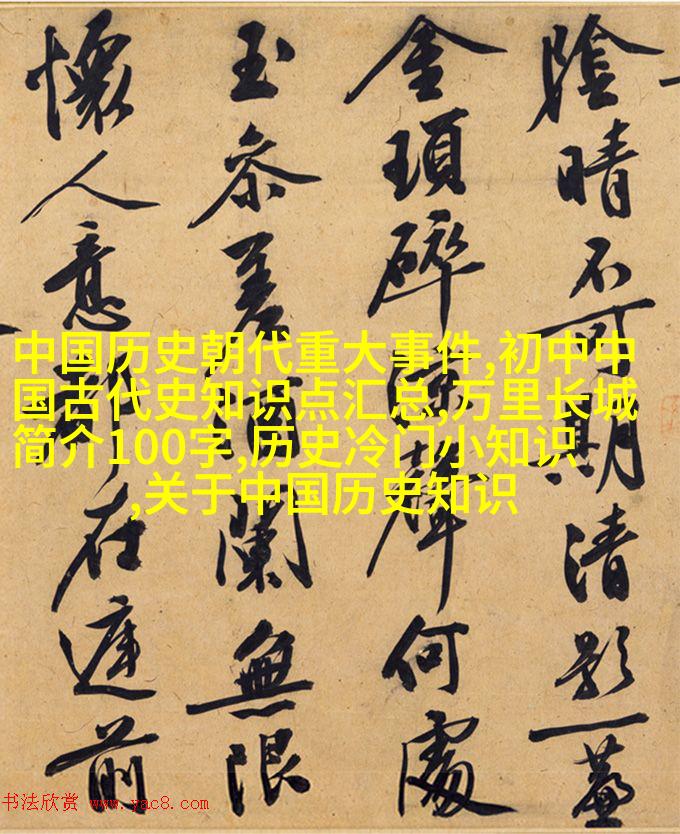 陰晴不可期清影一蓋
金瑣碎聲何處
玉參差蘭無限
懷人意在前
中国历史朝代重大事件,初中中
国古代史知识点汇总,万里长城
简介100字,历史冷门小知识
,关于中国历史知识
书法欣赏 www.yac8.com